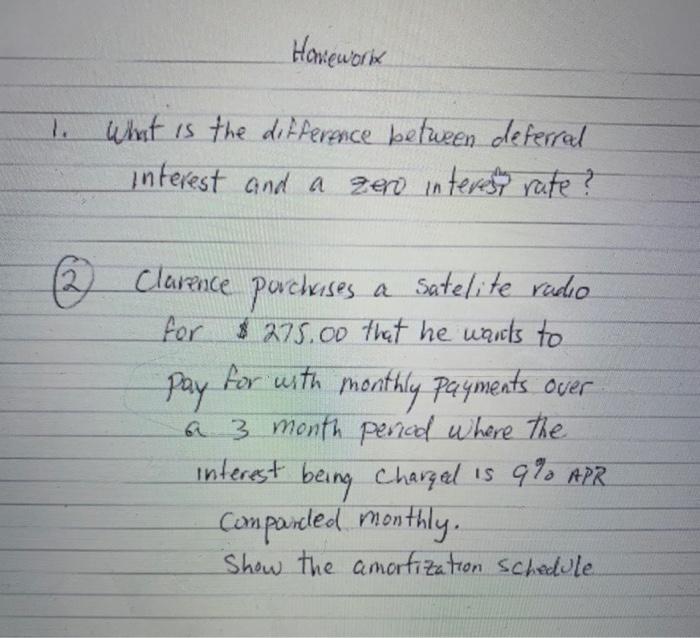 Homework
1. What is the difference between deferral
interest and a zero interest rate?
2 Clarence purchases a satelite radio
for $ 275.00 that he wants to
pay for with monthly payments over
a 3 month period where the
interest being charged is 9% APR
Compounded monthly.
Show the amortization schedule